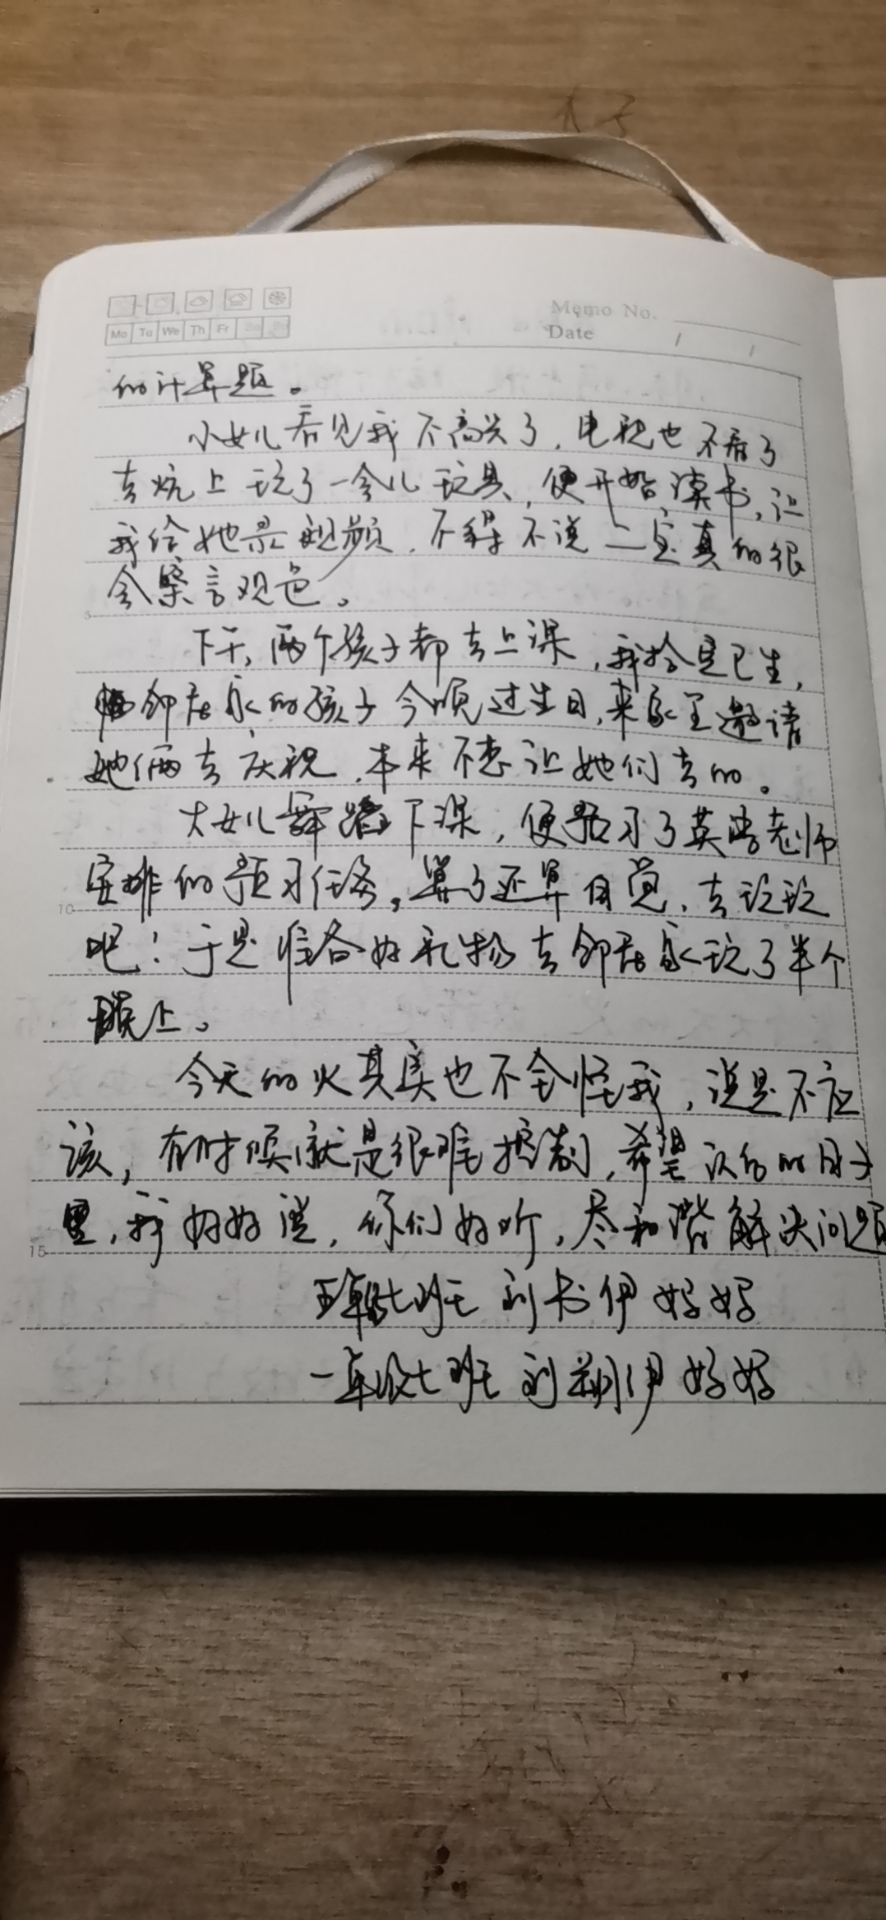 Memo No.
Mo Tu We Th Fr
Date / /
的计算题。
小女儿看见我不高兴了,电视也不看了
去炕上玩了一会儿玩具,便开始读书,让
我给她录视频,不得不说二宝真的很
会察言观色。
下午,两个孩子都去上课,我拾是已生,
邻居家的孩子今晚过生日,来家里邀请
她俩去庆祝,本来不想让她们去的。
大女儿舞蹈下课,便预习了英语老师
安排的预习任务,算了还算自觉,去玩玩
吧!于是准备好礼物去邻居家玩了半个
晚上。
今天的火其实也不全怪我,说是不应
该,有时候就是很难控制,希望以后的日子
里,我好好说,你们好听,尽和谐解决问题
10
15
五年级七班 刘书伊 妈妈
一年级七班 刘翊伊 妈妈